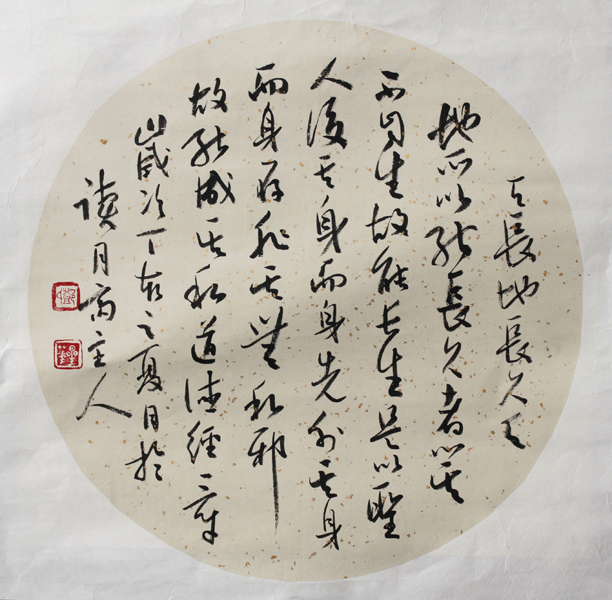 天長地長久天
地所以能長久者以其
不自生故能長生是以聖
人後其身而身先外其身
而身存非其無私邪
故能成其私道德經章
歲次丁酉之夏月於
讀月斋主人